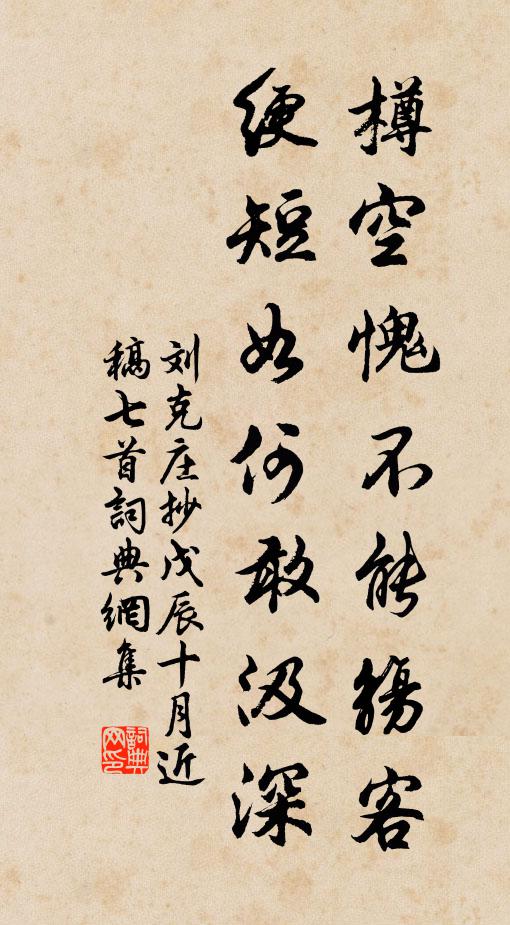 樽空愧不能觴客
綆短如何敢汲深
刘克庄抄戊辰十月近
稿七首詞典網集
詞典
网印